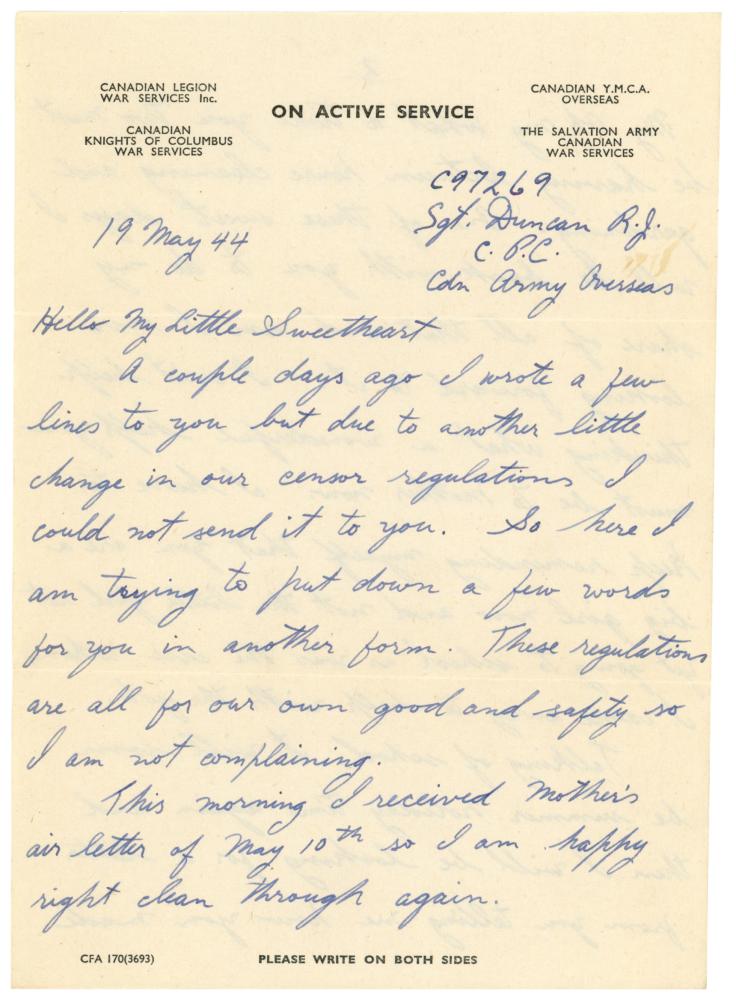 CANADIAN LEGION
WAR SERVICES Inc.
CANADIAN
KNIGHTS OF COLUMBUS
WAR SERVICES
ON ACTIVE SERVICE
CANADIAN Y.M.C.A.
OVERSEAS
THE SALVATION ARMY
CANADIAN
WAR SERVICES
C97269
Sgt. Duncan R.J.
C.P.C.
Cdn Army Overseas
19 May 44
Hello My Little Sweetheart
A couple days ago I wrote a few
lines to you but due to another little
change in our censor regulations I
could not send it to you. So here I
am trying to put down a few words
for you in another form. These regulations
are all for our own good and safety so
I am not complaining.
This morning I received Mother's
air letter of May 10th so I am happy
right clean through again.
CFA 170(3693)
PLEASE WRITE ON BOTH SIDES